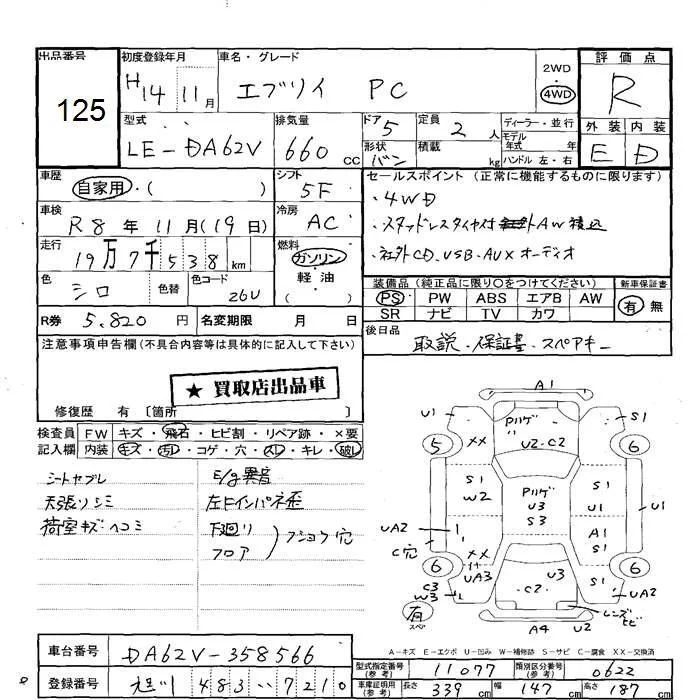 出品番号
125
初度登録年月
H14年11月
車名・グレード
エブリイ PC
2WD
4WD
評価点
R
外装 内装
E D
型式
LE-DA62V
排気量
660cc
ドア 5
形状 バン
定員 2人
積載 kg
ディーラー・並行
モデル年式 年式
ハンドル 左・右
車歴
自家用・( )
シフト
5F
車検
R8年11月(19日)
冷房
AC
走行
19万7千538km
燃料
ガソリン
軽油
( )
色
シロ
色替
色コード
26U
R券 5.820円
名変期限 月 日
セールスポイント(正常に機能するものに限ります)
・4WD
・スタッドレスタイヤ付 社外AW積込
・社外CD.USB.AUXオーディオ
装備品(純正品に限り○をつけてください)
PS PW ABS エアB AW
SR ナビ TV カワ
新車保証書
有 無
後日品
取説・保証書・スペアキー
注意事項申告欄(不具合内容等は具体的に記入して下さい)
★買取店出品車
修復歴 有〔箇所 〕
検査員記入欄
FW キズ・飛石・ヒビ割・リペア跡・×要
内装 キズ・汚レ・コゲ・穴・スレ・キレ・破レ
シートヤブレ
天張りシミ
荷室キズ・ヘコミ
E/g異音
左Fインパネ歪
下廻り
フロア
フショク穴
A1
U1
S1
Pハゲ
××
U2・C2
5
6
S1
W2
Pハゲ
U3
S3
S1
U1
U1
UA2
C穴
A1
S1
××
UA3
6
6
C3
W3
C2
U3
UA2
レンズヒビ
有
スペア
A4
U2
A-キズ E-エクボ U-凹み W-補修跡 S-サビ C-腐食 XX-交換済
車台番号
DA62V-358566
登録番号
旭川 483 7210
型式指定番号(参考)
11077
類別区分番号(参考)
0622
車庫証明用(参考)
長さ 339cm
幅 147cm
高さ 187cm